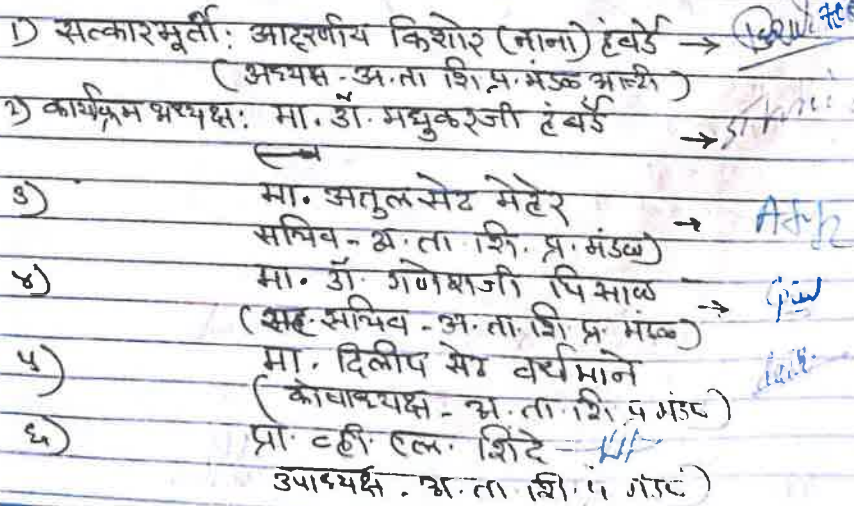 १) सत्कारमूर्ती: आदरणीय किशोर (नाना) हंबर्डे →
(अध्यक्ष - अ.ता शि.प्र. मंडळ आष्टी)
२) कार्यक्रम अध्यक्ष: मा. डॉ. मधुकरजी हंबर्डे →
३) मा. अतुलसेट मेहेर →
सचिव - अ. ता. शि. प्र. मंडळ)
४) मा. डॉ. गणेशजी पिसाळ →
(सह. सचिव - अ. ता. शि. प्र. मंडळ)
५) मा. दिलीप सेट वर्धमाने
(कोषाध्यक्ष - अ. ता. शि. प्र मंडळ)
६) प्रा. व्ही. एल. शिंदे
उपाध्यक्ष - अ. ता. शि. प्र मंडळ)